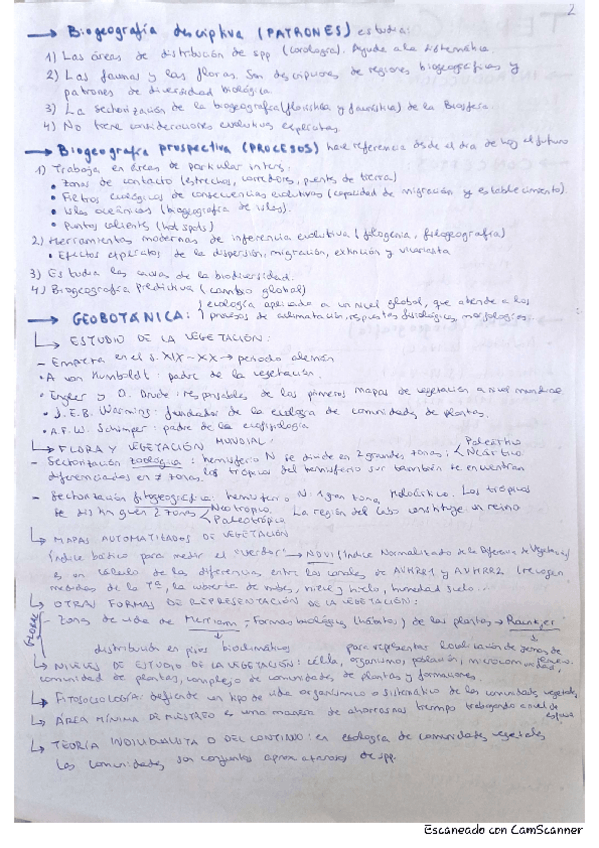 2
→ Biogeografía descriptiva (PATRONES) estudia:
1) Las áreas de distribución de spp (corología). Ayuda a la sistemática.
2) Las faunas y las floras. Son descripciones de regiones biogeográficas y
patrones de diversidad biológica.
3) La sectorización de la biogeografía (florística y faunística) de la Biosfera
4) No tiene consideraciones evolutivas explícitas.
→ Biogeografía prospectiva (PROCESOS) hace referencia desde el día de hoy al futuro
1) Trabaja en áreas de particular interés.
• Zonas de contacto (estrechos, corredores, puentes de tierra)
• Filtros ecológicos de consecuencias evolutivas (capacidad de migración y establecimiento).
• Islas oceánicas (biogeografía de islas).
• Puntos calientes (hot spots)
2) Herramientas modernas de inferencia evolutiva (filogenia, filogeografía)
• Efectos explícitos de la dispersión, migración, extinción y vicarianza
3) Estudia las causas de la biodiversidad.
4) Biogeografía predictiva (cambio global)
→ GEOBOTÁNICA: ecología aplicada a un nivel global, que atiende a los
procesos de aclimatación, respuestas fisiológicas, morfologías
↳ ESTUDIO DE LA VEGETACIÓN:
- Empieza en el s. XIX-XX → periodo alemán
• A von Humboldt: padre de la vegetación.
• Engler y O. Drude: responsables de los primeros mapas de vegetación a nivel mundial
• J.E.B. Warming: fundador de la ecología de comunidades de plantas.
• A.F.W. Schimper: padre de la ecofisiología
↳ FLORA Y VEGETACIÓN MUNDIAL:
- Sectorización zoológica: hemisferio N se divide en 2 grandes zonas: Paleártico Neártico
los trópicos del hemisferio sur también se encuentran
diferenciados en 7 zonas.
- Sectorización fitogeográfica: hemisferio N: 1 gran zona, Holoártico. Los trópicos
se distinguen 2 zonas Neotrópico. Paleotrópico La región del Cabo constituye un reino
↳ MAPAS AUTOMATIZADOS DE VEGETACIÓN
índice básico para medir el "verdor" → NDVI (Índice Normalizado de la Diferencia de Vegetación)
es un cálculo de la diferencia entre los canales de AVHRR1 y AVHRR2 (recogen
medidas de la Tª, la cubierta de nubes, nieve y hielo, humedad suelo...
↳ OTRAS FORMAS DE REPRESENTACIÓN DE LA VEGETACIÓN:
- Zonas de vida de Merriam; Formas biológicas (hábitos) de las plantas → Raunkjer
distribución en pisos bioclimáticos para representar localización de yemas de
↳ NIVELES DE ESTUDIO DE LA VEGETACIÓN: célula, organismo, población, microcomunidad,
comunidad de plantas, complejo de comunidades de plantas y formaciones.
↳ FITOSOCIOLOGÍA: defiende un tipo de vida organísmico o sistemático de las comunidades vegetales
↳ ÁREA MÍNIMA DE MUESTREO es una manera de ahorrarnos tiempo trabajando a nivel de
↳ TEORÍA INDIVIDUALISTA O DEL CONTINUO: en ecología de comunidades vegetales
las comunidades son conjuntos de spp.
Escaneado con CamScanner